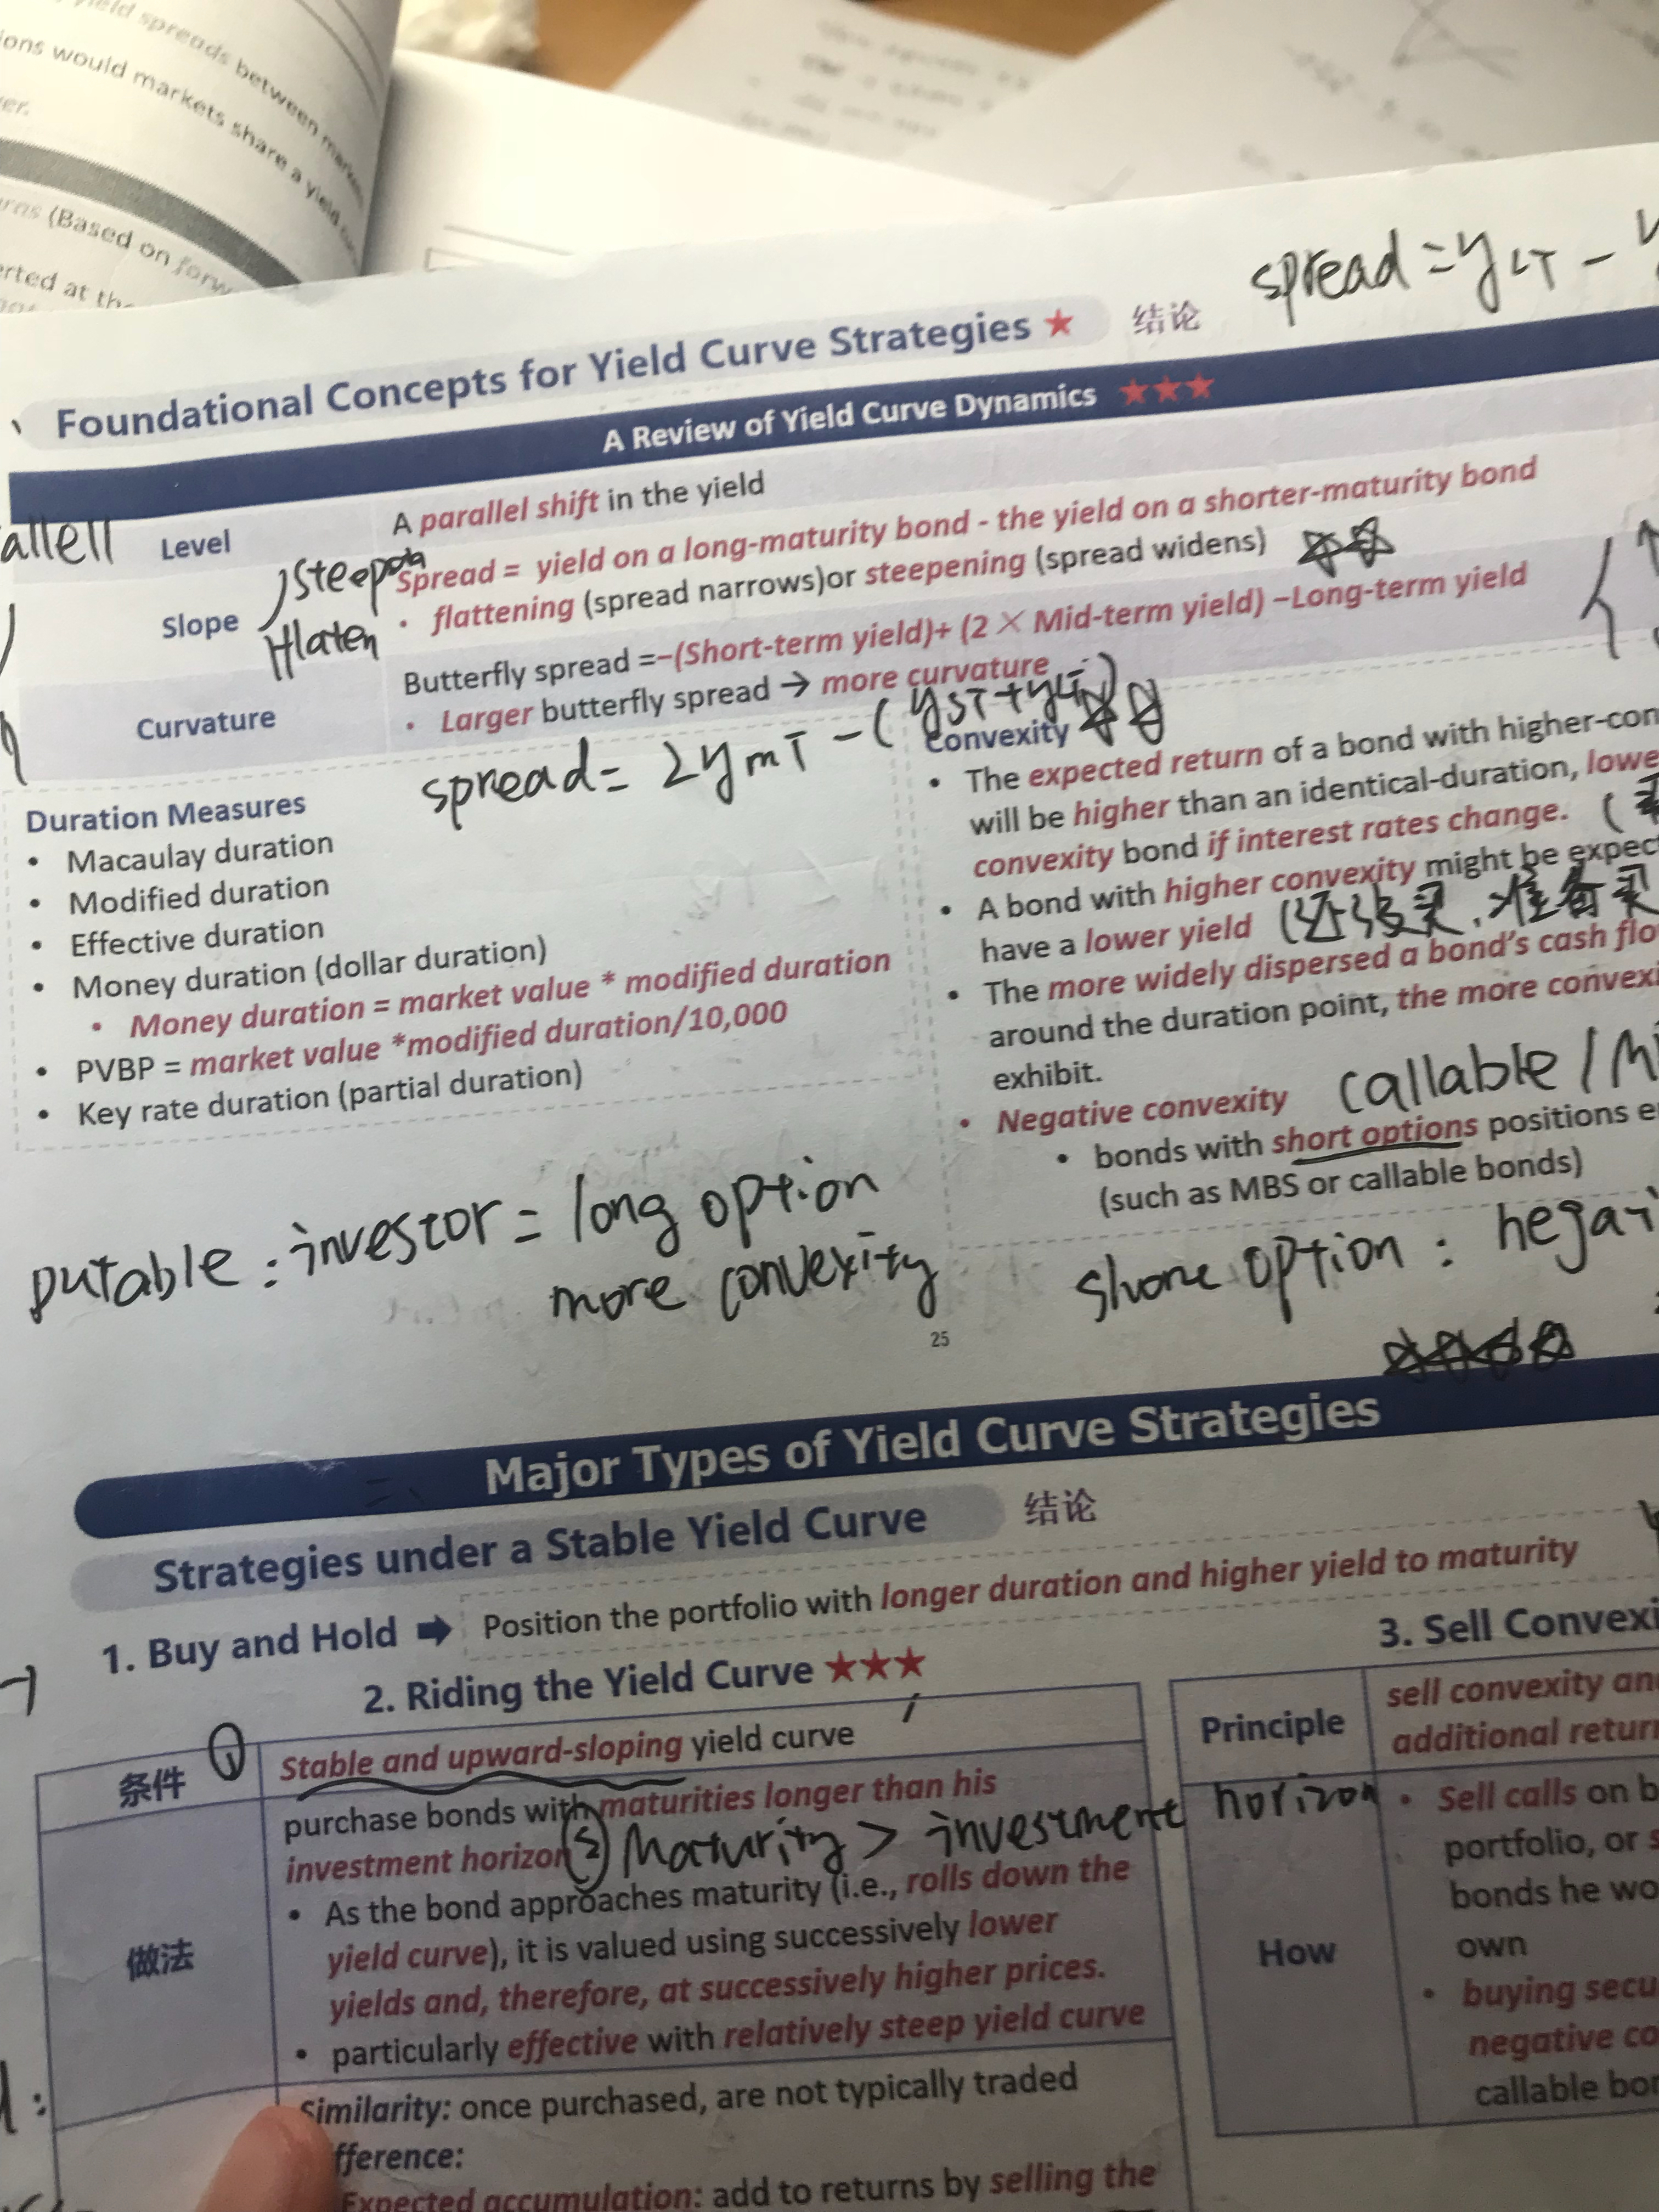 yield spreads between
ions would markets share a yield
er.
(Based on forw
erted at the
spread = yLT -
Foundational Concepts for Yield Curve Strategies ★ 结论
A Review of Yield Curve Dynamics ★★★
allell
Level
A parallel shift in the yield
Slope
Steep
Hlaten
Spread = yield on a long-maturity bond - the yield on a shorter-maturity bond
• flattening (spread narrows)or steepening (spread widens)
Curvature
Butterfly spread =−(Short-term yield)+ (2 × Mid-term yield) −Long-term yield
• Larger butterfly spread → more curvature
spread = 2ymT - (yST + yLT)
Duration Measures
• Macaulay duration
• Modified duration
• Effective duration
• Money duration (dollar duration)
• Money duration = market value * modified duration
• PVBP = market value *modified duration/10,000
• Key rate duration (partial duration)
Convexity
• The expected return of a bond with higher-con
will be higher than an identical-duration, lowe
convexity bond if interest rates change.
• A bond with higher convexity might be expect
have a lower yield
• The more widely dispersed a bond's cash flo
around the duration point, the more convexi
exhibit.
• Negative convexity callable / M
• bonds with short options positions e
(such as MBS or callable bonds)
putable : investor = long option
more convexity
option : negati
25
Major Types of Yield Curve Strategies
Strategies under a Stable Yield Curve 结论
1. Buy and Hold ➡ Position the portfolio with longer duration and higher yield to maturity
2. Riding the Yield Curve ★★★
条件 ①
Stable and upward-sloping yield curve
做法
purchase bonds with maturities longer than his
investment horizon
② Maturity > investment horizon
• As the bond approaches maturity (i.e., rolls down the
yield curve), it is valued using successively lower
yields and, therefore, at successively higher prices.
• particularly effective with relatively steep yield curve
Similarity: once purchased, are not typically traded
fference:
Expected accumulation: add to returns by selling the
3. Sell Convexi
Principle
sell convexity an
additional return
How
• Sell calls on b
portfolio, or s
bonds he wo
own
• buying secu
negative co
callable bon